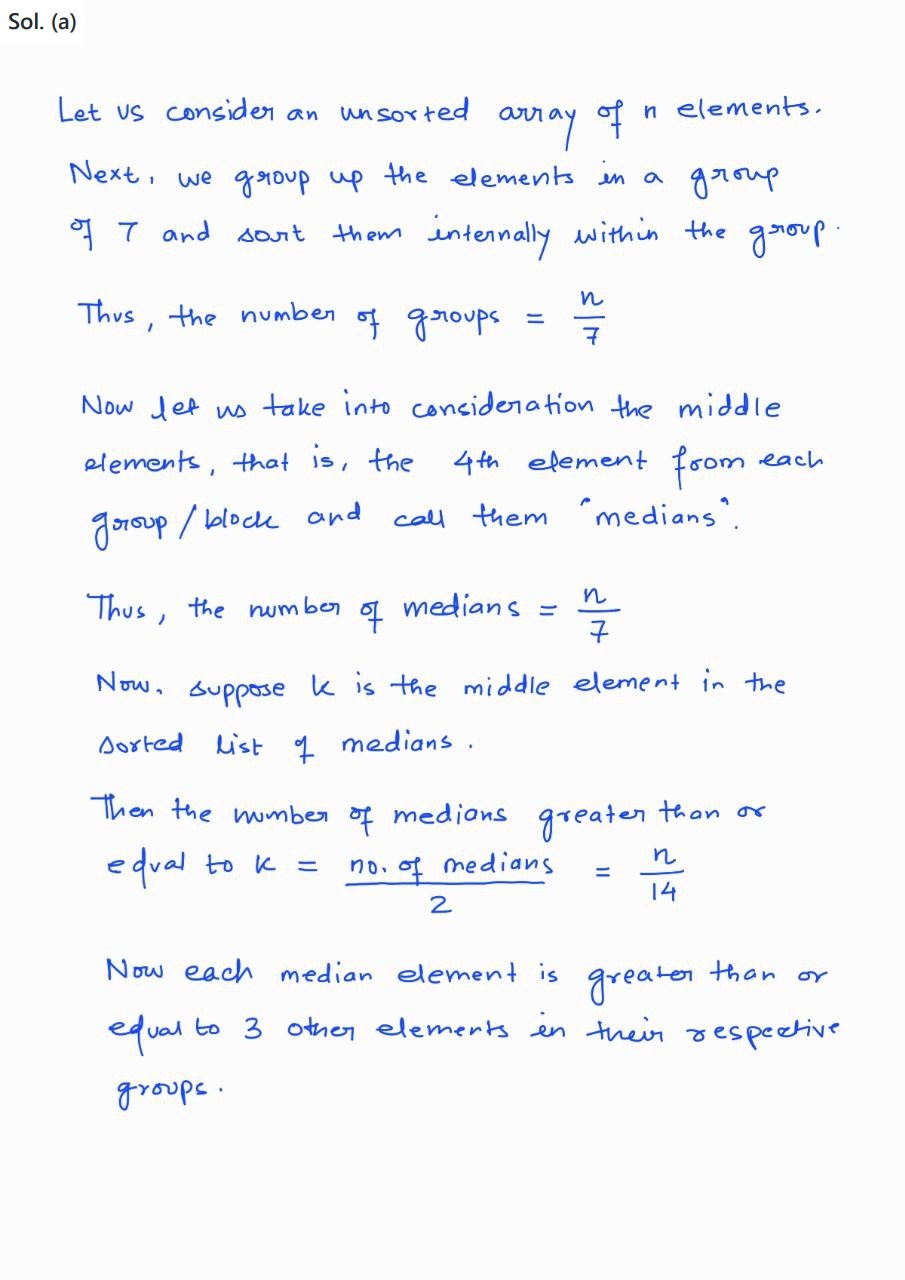 Sol. (a)
Let us consider an unsorted array of n elements.
Next, we group up the elements in a group
of 7 and sort them internally within the group.
Thus, the number of groups = n/7
Now let us take into consideration the middle
elements, that is, the 4th element from each
group / block and call them "medians".
Thus, the number of medians = n/7
Now, suppose k is the middle element in the
sorted list of medians.
Then the number of medians greater than or
equal to k = no. of medians/2 = n/14
Now each median element is greater than or
equal to 3 other elements in their respective
groups.